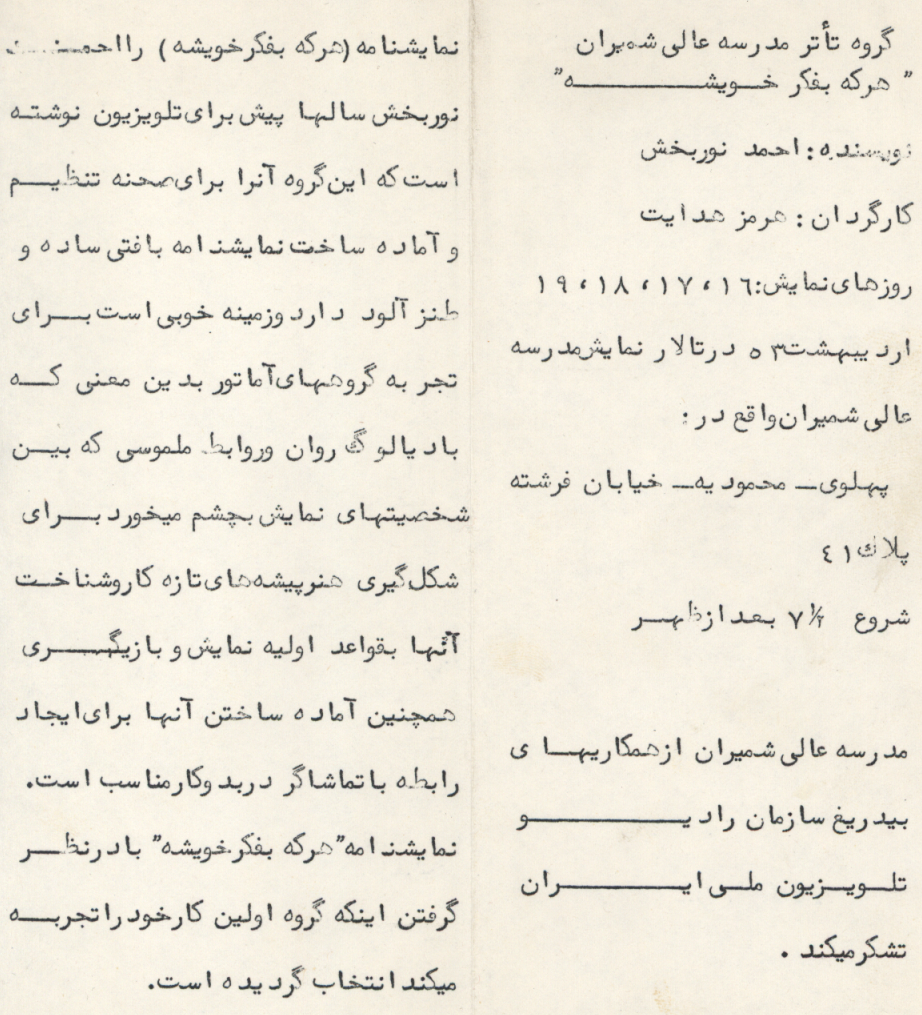 گروه تأتر مدرسه عالی شمیران
" هرکه بفکر خویشه"
نویسنده : احمد نوربخش
کارگردان : هرمز هدایت
روزهای نمایش:۱۶ ، ۱۷ ، ۱۸ ، ۱۹
اردیبهشت ۵۳ درتالار نمایش مدرسه
عالی شمیران واقع در :
پهلوی ـ محمودیه ـ خیابان فرشته
پلاک ۴۱
شروع ۷½ بعد ازظهر
مدرسه عالی شمیران ازهمکاریها ی
بیدریغ سازمان رادیو
تلویزیون ملی ایران
تشکر میکند .
نمایشنامه (هرکه بفکر خویشه) را احمد
نوربخش سالها پیش برای تلویزیون نوشته
است که این گروه آنرا برای صحنه تنظیم
و آماده ساخت نمایشنامه بافتی ساده و
طنز آلود دارد وزمینه خوبی است برای
تجر به گروههای آماتور بدین معنی که
بادیالوگ روان وروابط ملموسی که بین
شخصیتهای نمایش بچشم میخورد برای
شکل گیری هنرپیشه های تازه کاروشناخت
آنها بقواعد اولیه نمایش و بازیگری
همچنین آماده ساختن آنها برای ایجاد
رابطه باتماشاگر دربدوکارمناسب است.
نمایشنامه"هرکه بفکر خویشه" بادرنظر
گرفتن اینکه گروه اولین کارخود را تجربه
میکند انتخاب گردیده است.